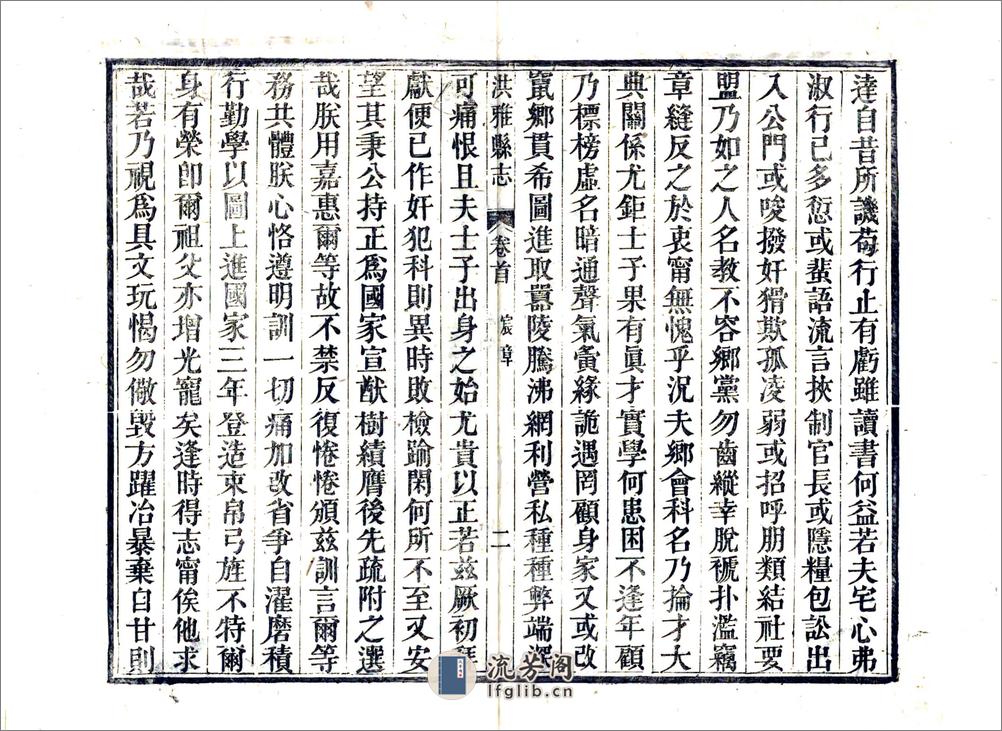 達自昔所譏苟行止有虧雖讀書何益若夫宅心弗
淑行己多愆或蜚語流言挾制官長或隱糧包訟出
入公門或唆撥奸猾欺孤凌弱或招呼朋類結社要
盟乃如之人名教不容鄉黨勿齒縱幸脫褫扑濫竊
章縫反之於衷甯無愧乎況夫鄉會科名乃掄才大
典關係尤鉅士子果有眞才實學何患困不逢年顧
乃標榜虛名暗通聲氣夤緣詭遇罔顧身家又或改
竄鄉貫希圖進取囂陵騰沸網利營私種種弊端深
洪雅縣志 卷首 宸章 二
可痛恨且夫士子出身之始尤貴以正若茲厥初拜
獻便已作奸犯科則異時敗檢踰閑何所不至又安
望其秉公持正爲國家宣猷樹績膺後先疏附之選
哉朕用嘉惠爾等故不禁反復惓惓頒兹訓言爾等
務共體朕心恪遵明訓一切痛加改省爭自濯磨積
行勤學以圖上進國家三年登造束帛弓旌不特爾
身有榮卽爾祖父亦增光寵矣逢時得志甯俟他求
哉若乃視爲具文玩愒勿儆毀方躍冶暴棄自甘則
流芳阁
lfglib.cn